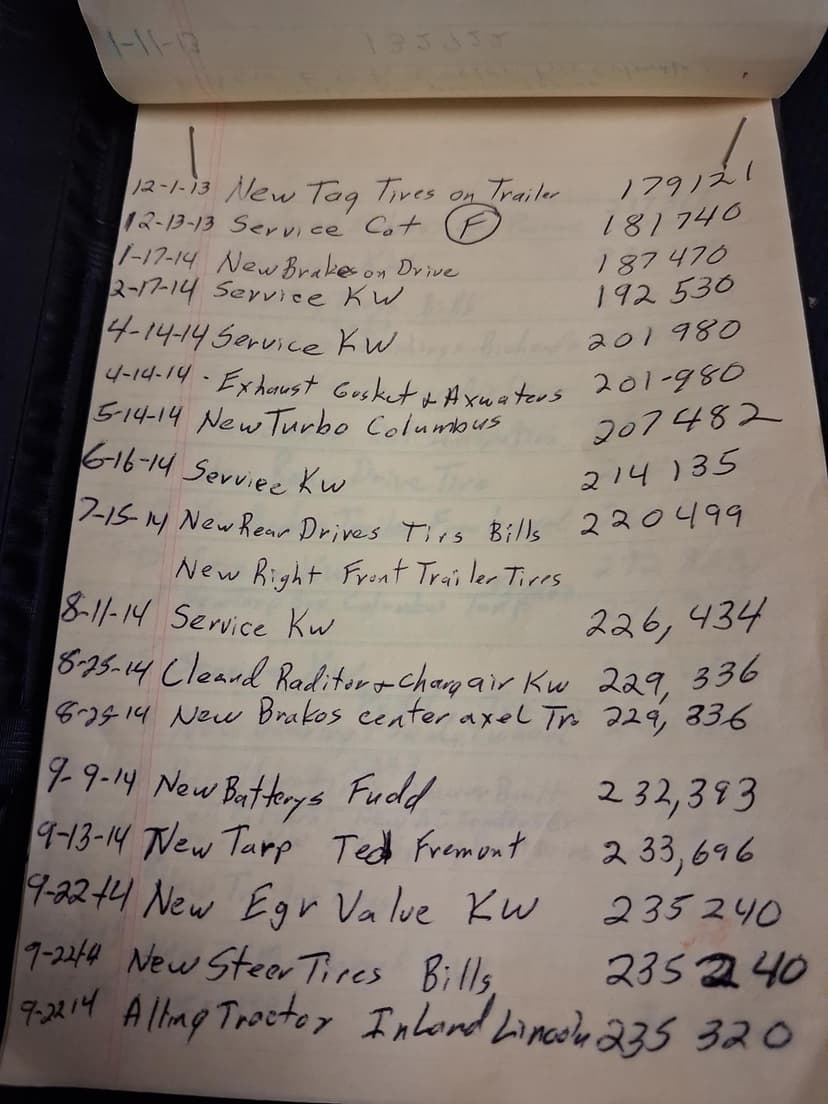 1-11-13
12-1-13 New Tag Tires on Trailer 179121
12-13-13 Service Cat F 181740
1-17-14 New Brakes on Drive 187470
2-17-14 Service KW 192 530
4-14-14 Service KW 201 980
4-14-14 - Exhaust Gasket & Axuaters 201-980
5-14-14 New Turbo Columbus 207482
6-16-14 Service KW 214 135
7-15-14 New Rear Drives Tirs Bills 220499
New Right Front Trailer Tires
8-11-14 Service KW 226, 434
8-25-14 Cleand Raditor & Chargair KW 229, 336
8-25-14 New Brakes center axel Tr. 229, 336
9-9-14 New Batterys Fudd 232,393
9-13-14 New Tarp Ted Fremont 233,696
9-22-14 New Egr Valve KW 235240
9-22-14 New Steer Tires Bills 235240
9-22 14 Alling Tractor Inland Lincoln 235 320